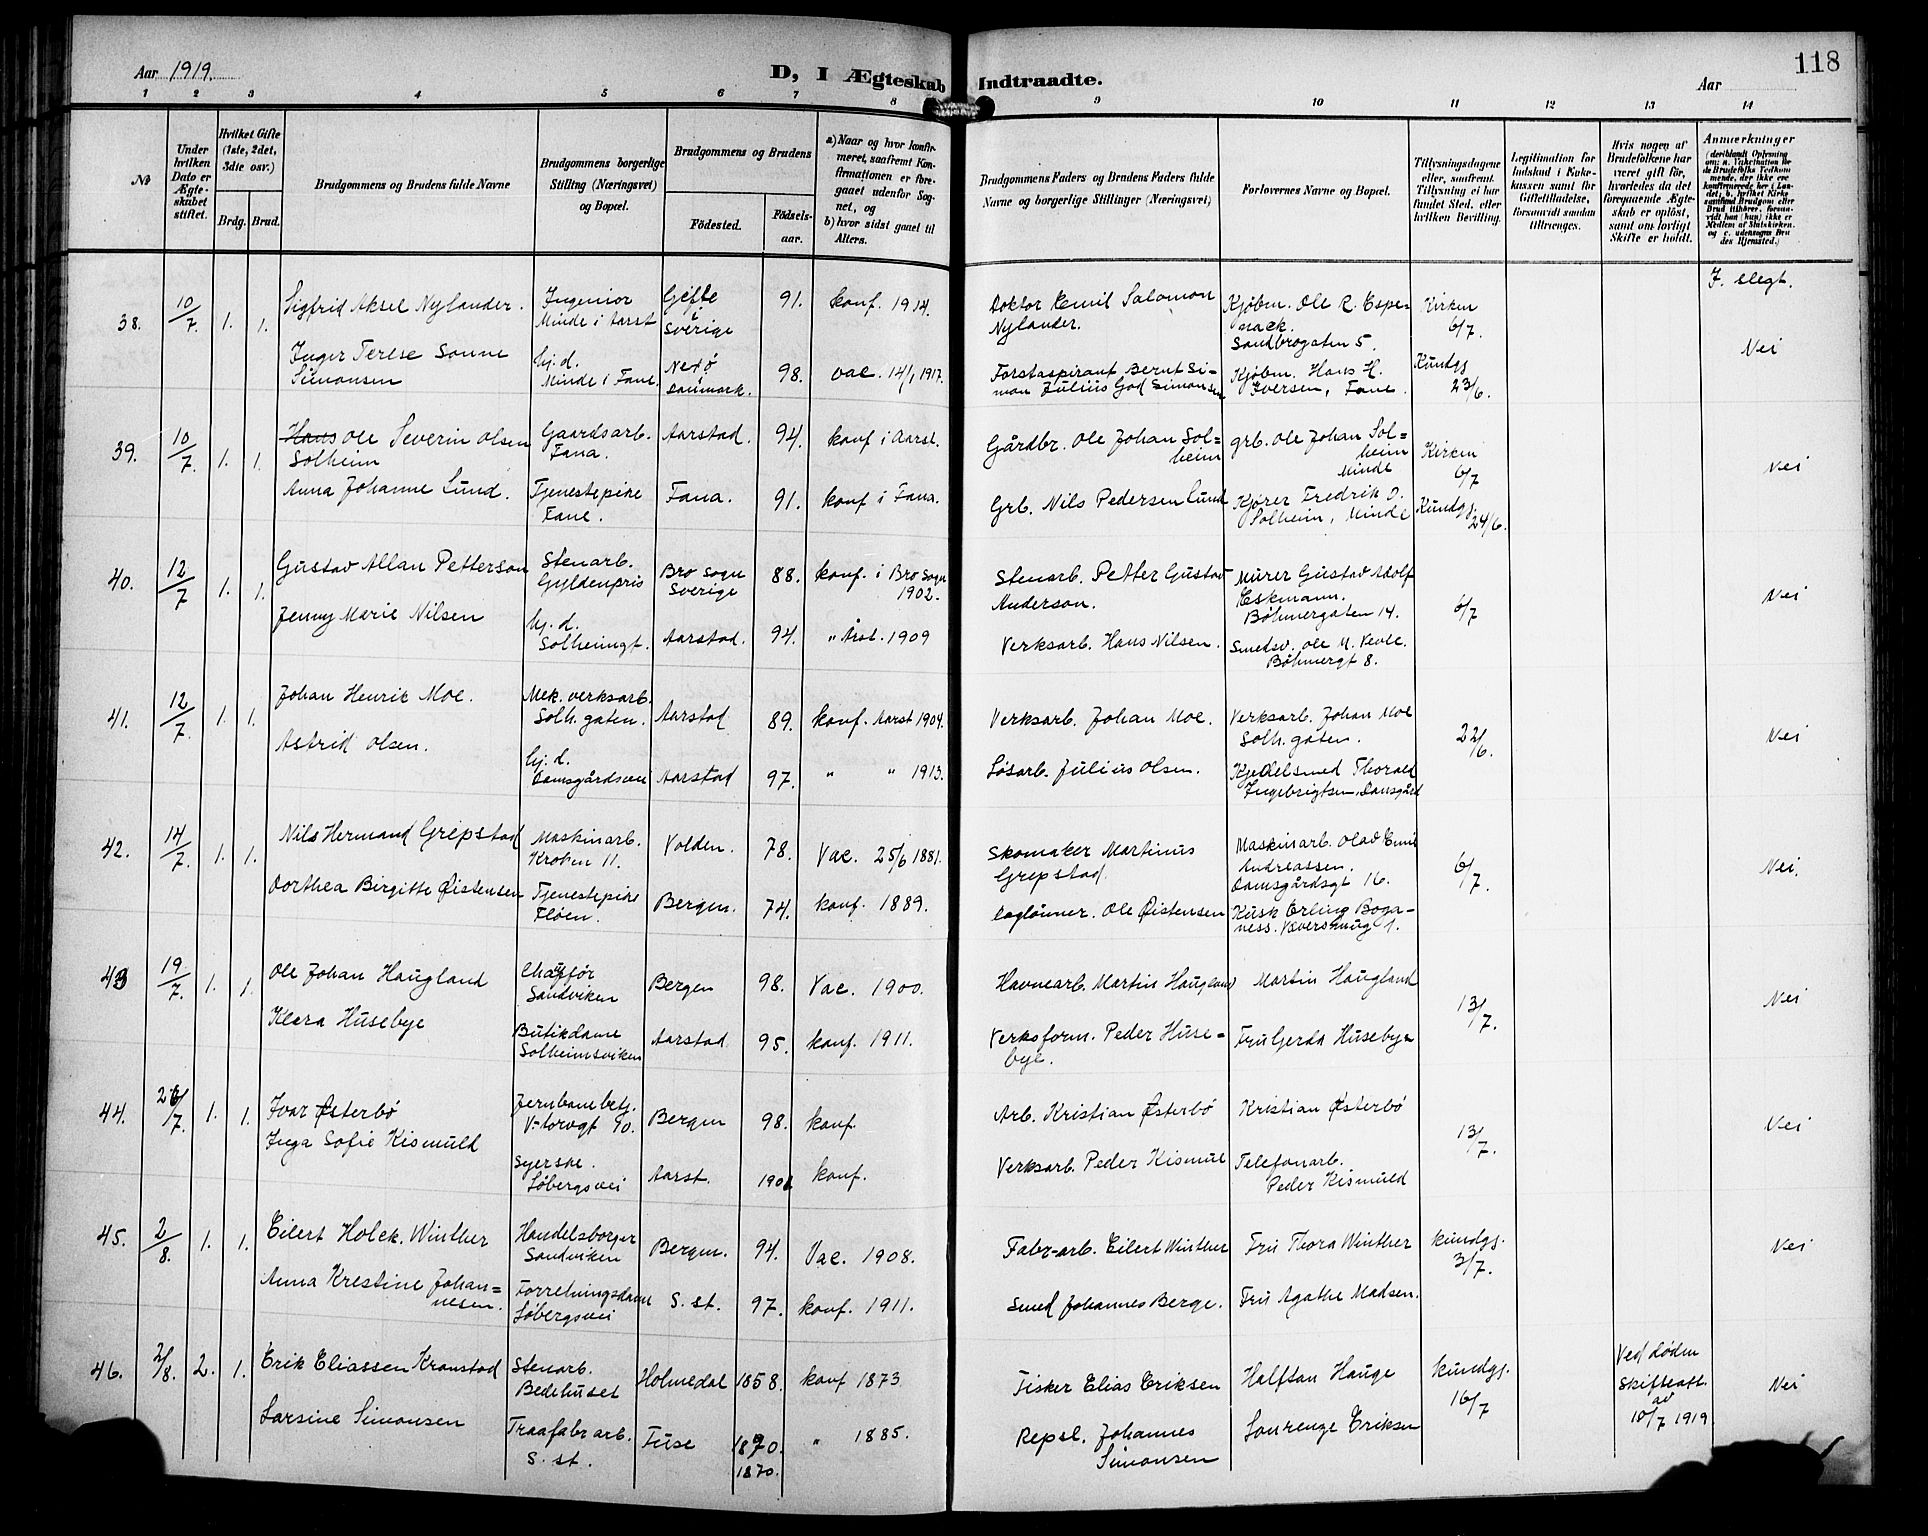 118
Aar 1919.
D, I Ægteskab Indtraadte.
Aar
1 2 3 4 5 6 7 8 9 10 11 12 13 14
No
Under hvilken Dato er Ægteskabet stiftet.
Hvilket Gifte (1ste, 2det, 3die osv.)
Brdg. Brud.
Brudgommens og Brudens fulde Navne
Brudgommens borgerlige Stilling (Næringsvei) og Bopæl.
Brudgommens og Brudens
Födested.
Födselsaar.
a) Naar og hvor konfirmeret, saafremt Konfirmationen er foregaaet udenfor Sognet, og
b) hvor sidst gaaet til Alters.
Brudgommens Faders og Brudens Faders fulde Navne og borgerlige Stillinger (Næringsvei)
Forlovernes Navne og Bopæl.
Tillysningsdagene eller, saafremt Tillysning ei har fundet Sted, efter hvilken Bevilling.
Legitimation for Indskud i Enkekassen samt for Giftetilladelse, forsaavidt saadan tiltrænges.
Hvis nogen af Brudefolkene har været gift før, hvorledes da det foregaaende Ægteskab er opløst, samt om lovligt Skifte er holdt.
Anmærkninger
38. 10/7. 1. 1. Sigfrid Aksel Nylander. Ingeniør Minde i Aarst Gefle Sverige 91. konf. 1914. Doktor Emil Salomon Nylander. Kjøbm. Ole R. Espenack. Sandbrogaten 5. Kirken 6/7. F. slegt.
Inger Terese Sonne Simonsen hj. d. Minde i Fane. Nexø Danmark. 98. vac. 14/1 1917. Forstaspirant Bernt Simon Julius God Simonsen Kjøbm. Hans H. Iversen, Fane. Kundgj 23/6. Nei
39. 10/7. 1. 1. Hans Ole Severin Olsen Solheim Gaardsarb. Fana. Aarstad. 94. konf i Aarst. Gårdbr. Ole Johan Solheim grb. Ole Johan Solheim Minde Kirken 6/7 Nei
Anna Johanne Lund. Tjenestepike Fane. Fana. 91. konf i Fana. Grb. Nils Pedersen Lund Kjører Fredrik O. Solheim, Minde Kundgj 24/6.
40. 12/7 1. 1. Gustav Allan Petterson Stenarb. Gyldenpris Bro Sogn Sverige 88. konf. i Bro Sogn 1902. Stenarb. Petter Gustav Anderson. Murer Gustav Adolf Eskmann. Bøhmergaten 14. 6/7 Nei
Jenny Marie Nilsen hj. d. Solheimgt. Aarstad. 94. " Årst. 1909 Verksarb. Hans Nilsen. Smedsv. Ole M. Vevle. Bøhmergt 8.
41. 12/7. 1. 1. Johan Henrik Moe. Mek. verksarb. Solh. gaten. Aarstad 89. konf. Aarst 1904. Verksarb. Johan Moe. Verksarb. Johan Moe Solh. gaten. 22/6. Nei
Astrid Olsen. hj. d. Damsgårdsvei Aarstad 97. " " 1913. Løsarb. Julius Olsen. Kjedelsmed Thorald Ingebrigtsen, Damsgård
42. 14/7. 1. 1. Nils Hermand Grepstad Maskinarb. Kroken 11. Volden. 78. Vac. 25/6 1881. Skomaker Martinus Grepstad. Maskinarb. Olav Emil Andreassen. Damsgårdsgt 16. 6/7. Nei.
Dorthea Birgitte Øistensen Tjenestepike Fløen. Bergen. 74. konf. 1889. Daglønner. Ole Øistensen Kusk Erling Boganess.
43 19/7. 1. 1. Ole Johan Haugland Chaffør Sandviken Bergen 98. Vac. 1900. Havnearb. Martin Haugland Martin Haugland 13/7. Nei
Klara Husebye Butikdame Solheimsviken Aarstad 95. konf. 1911. Verksform. Peder Husebye. Fru Gerda Husebye
44. 26/7. 1. 1. Ivar Østerbø Jernbanebetj. V-torvgt 10. Bergen 98. konf. Arb. Kristian Østerbø Kristian Østerbø 13/7. Nei
Inga Sofie Kismuld Syerske. Løbergsvei Aarst. konf. Verksarb. Peder Kismul Telefonarb. Peder Kismuld
45. 2/8. 1. 1. Eilert Holck. Winther Handelsborger Sandviken Bergen. 94. Vac. 1908. Fabr-arb. Eilert Winther Fru Thora Winther kundgj. 3/7. Nei
Anna Krestine Johannesen. Forretningsdame Løbergsvei S. st. 97. konf. 1911. Smed Johannes Berge. Fru Agathe Madsen.
46. 2/8. 2. 1. Erik Eliassen Kranstad Stenarb. Bedehuset Holmedal 1858. konf 1873 Fisker Elias Eriksen Halftan Hauge kundgj. 16/7 Ved døden skifteatt. av 10/7 1919 Nei
Larsine Simonsen Traafabr arb. S. st. Fuse 1870. 1870. " 1885. Repsl. Johannes Simonsen Lourenze Eriksen